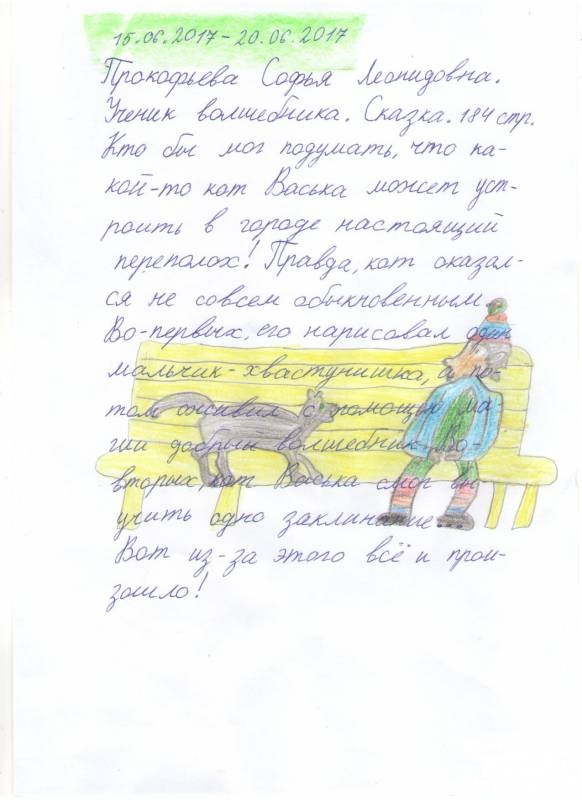 15.06.2017-20.06.2017
Прокофьева Софья Леонидовна.
Ученик волшебника. Сказка. 184 стр.
Кто бы мог подумать, что ка-
кой-то кот Васька может уст-
роить в городе настоящий
переполох! Правда, кот оказал-
ся не совсем обыкновенным.
Во-первых, его нарисовал один
мальчик-хвастунишка, а по-
том оживил с помощью ма-
гии добрый волшебник. Во-
вторых, кот Васька смог вы-
учить одно заклинание...
Вот из-за этого всё и прои-
зошло!